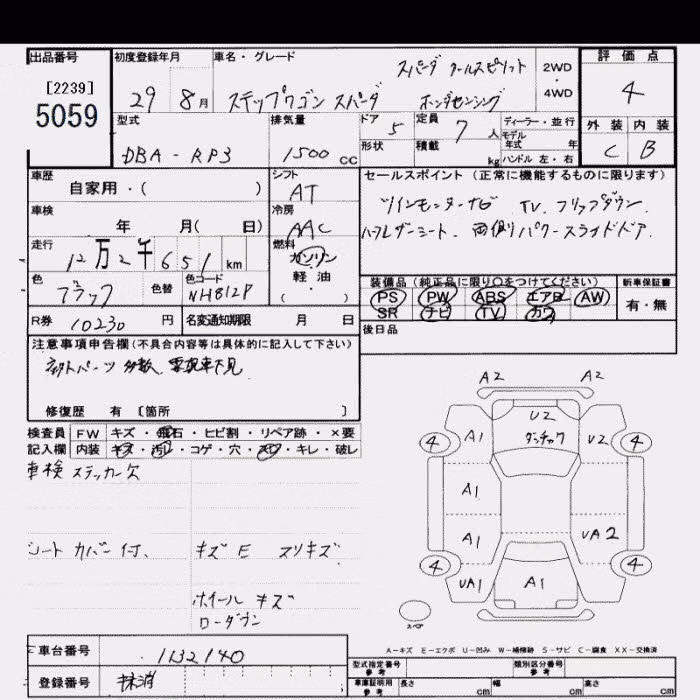 出品番号
[2239]
5059
初度登録年月
29 8月
車名・グレード
スパーダ クールスピリット
ステップワゴン スパーダ ホンダセンシング
2WD
・
4WD
評価点
4
外装 内装
C B
型式
DBA-RP3
排気量
1500 cc
ドア 5
形状
定員 7 人
積載 kg
ディーラー・並行
モデル年式 年
ハンドル 左・右
車歴
自家用・( )
シフト
AT
車検
年 月( 日)
冷房
AAC
走行
12万2千651 km
燃料
ガソリン
軽・油
( )
色
ブラック
色替
色コード
NH812P
R券 10230 円
名変通知期限 月 日
セールスポイント(正常に機能するものに限ります)
ツインモニターナビ TV. フリップダウン.
ハーフレザーシート. 両側パワースライドドア.
装備品(純正品に限り○をつけてください)
PS PW ABS エアB AW
SR ナビ TV カワ
新車保証書
有・無
後日品
注意事項申告欄(不具合内容等は具体的に記入して下さい)
社外パーツ多数、要現車下見
修復歴 有 [箇所 ]
検査員 FW キズ・飛石・ヒビ割・リペア跡・×要
記入欄 内装 キズ・汚レ・コゲ・穴・スレ・キレ・破レ
車検ステッカー欠
シートカバー付、
キズ E スリキズ
ホイールキズ
ローダウン
A2 A2
U2
ダッチャク
4 A1 U2 4
A1
A1 UA2
4 UA1 A1 4
スペア
A-キズ E-エクボ U-凹み W-補修跡 S-サビ C-腐食 XX-交換済
車台番号 1132140
登録番号 抹消
型式指定番号 参考
類別区分番号 参考
車庫証明用 参考
長さ cm 幅 cm 高さ cm